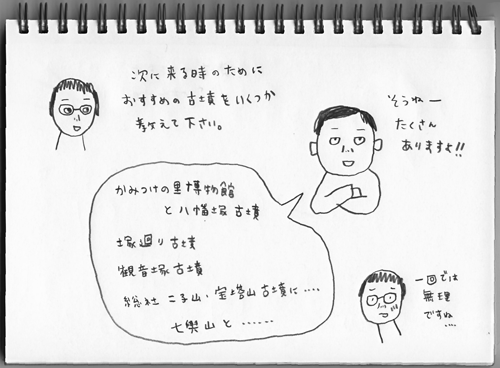 次に来る時のために
おすすめの古墳をいくつか
教えて下さい。
そうねー
たくさん
ありますよ!!
かみつけの里博物館
と八幡塚古墳
塚廻り古墳
観音塚古墳
総社二子山・宝塔山古墳に‥‥
七輿山と‥‥‥
一回では
無理
ですね‥‥